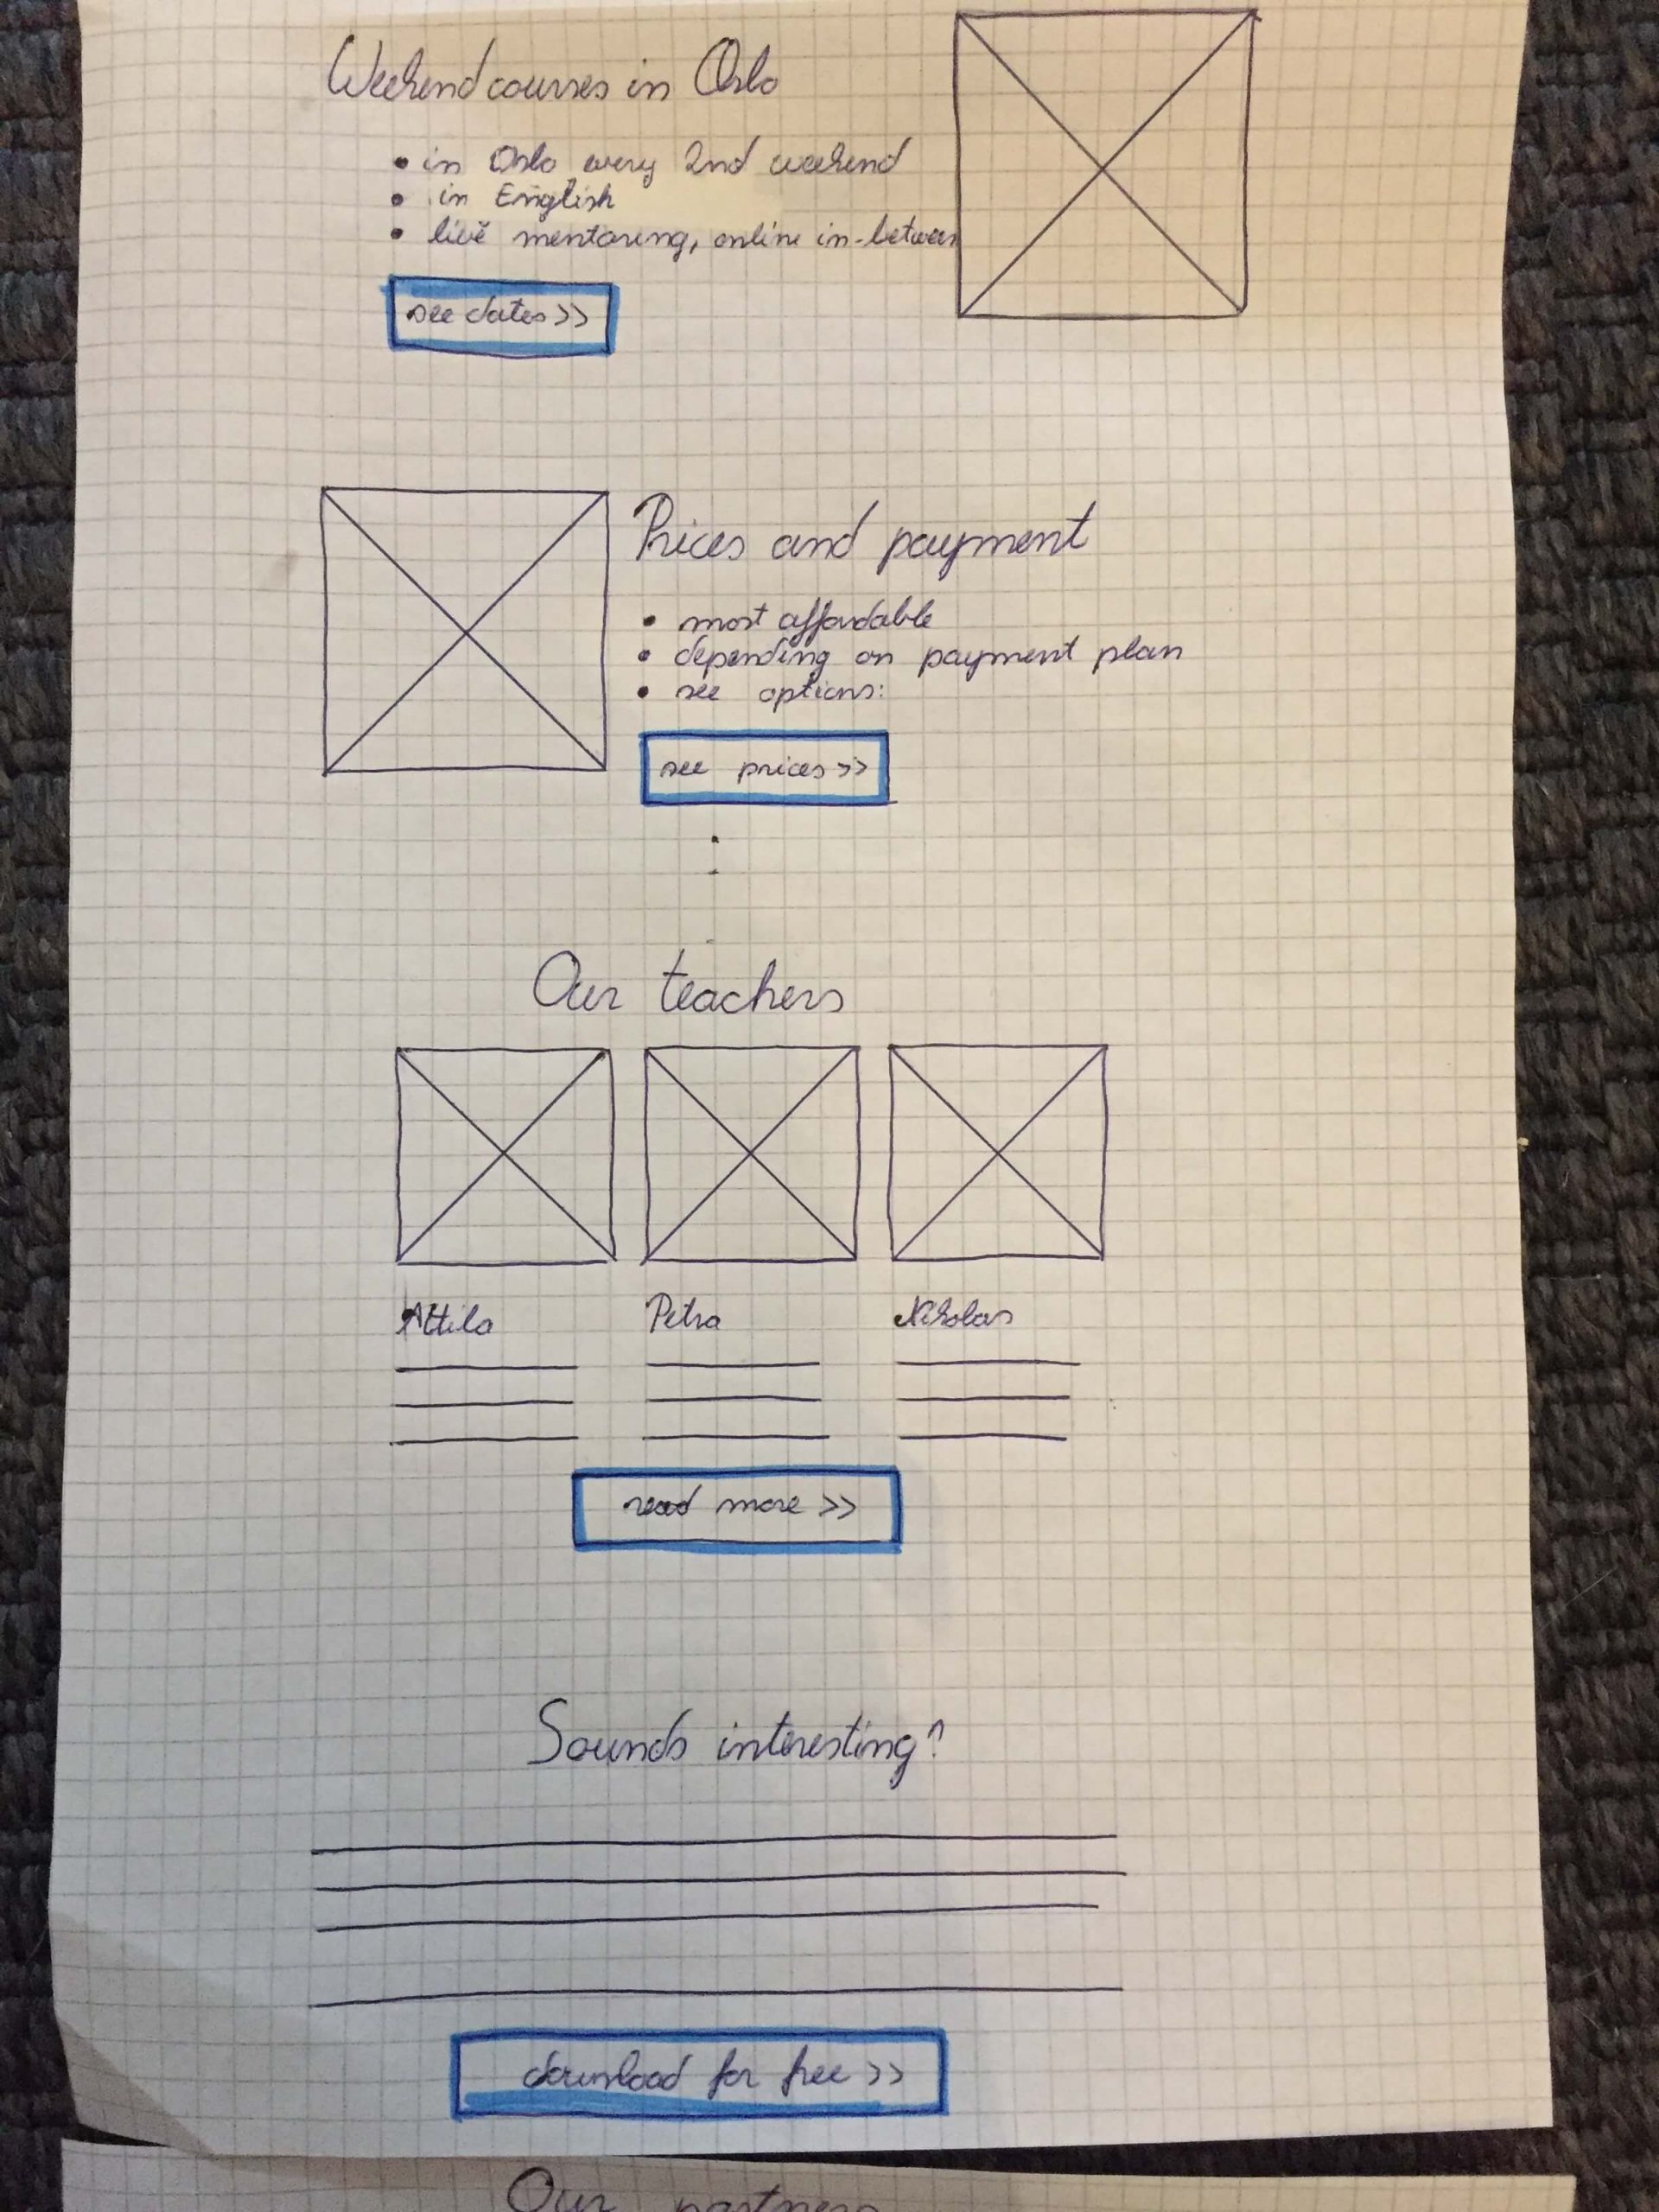 Weekend courses in Oslo
• in Oslo every 2nd weekend
• in English
• live mentoring, online in-between
see dates >>
Prices and payment
• most affordable
• depending on payment plan
• see options:
see prices >>
Our teachers
Attila Petra Nikolas
read more >>
Sounds interesting?
download for free >>
Our partners